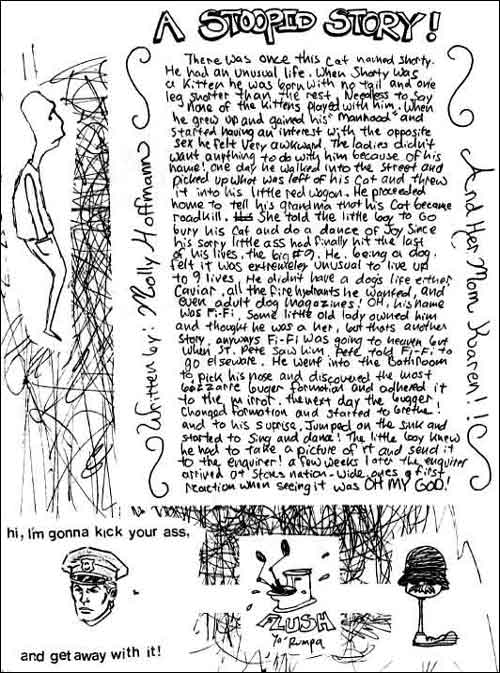 A STOOPID STORY!
There was once this cat named shorty.
He had an unusual life. When Shorty was
a kitten he was born with no tail and one
leg shorter than the rest. Needless to say
none of the kittens played with him. When
he grew up and gained his "Manhood" and
started having an interest with the opposite
sex he felt very awkward. The ladies didn't
want anything to do with him because of his
name! one day he walked into the street and
picked up what was left of his cat and threw
it into his little red wagon. He proceeded
home to tell his grandma that his cat became
roadkill. She told the little boy to go
bury his cat and do a dance of joy since
his sorry little ass had finally hit the last
of his lives. the big #9. He, being a dog,
felt it was extremeley unusual to live up
to 9 lives. He didn't have a dogs life either
Caviar, all the fire hydrants he wanted, and
even adult dog magazines! OH, his name
was Fi-Fi, some little old lady owned him
and thought he was a her, but thats another
story. anyways Fi-Fi was going to heaven but
when St. Pete saw him, Pete told Fi-Fi to
go elseware. He went into the Bathroom
to pick his nose and discovered the most
bizzarre buger formation and adhered it
to the mirror. the next day the bugger
changed formation and started to breathe!
and to his suprise, Jumped on the sink and
started to sing and dance! The little boy knew
he had to take a picture of it and send it
to the enquirer! a few weeks later the enquirer
arrived at stores nation-wide, ones first
reaction when seeing it was OH MY GOD!
Written by: Molly Hoffmann
And Her Mom Karen!!
hi, I'm gonna kick your ass,
and get away with it!
FLUSH
Yo' Rumpa